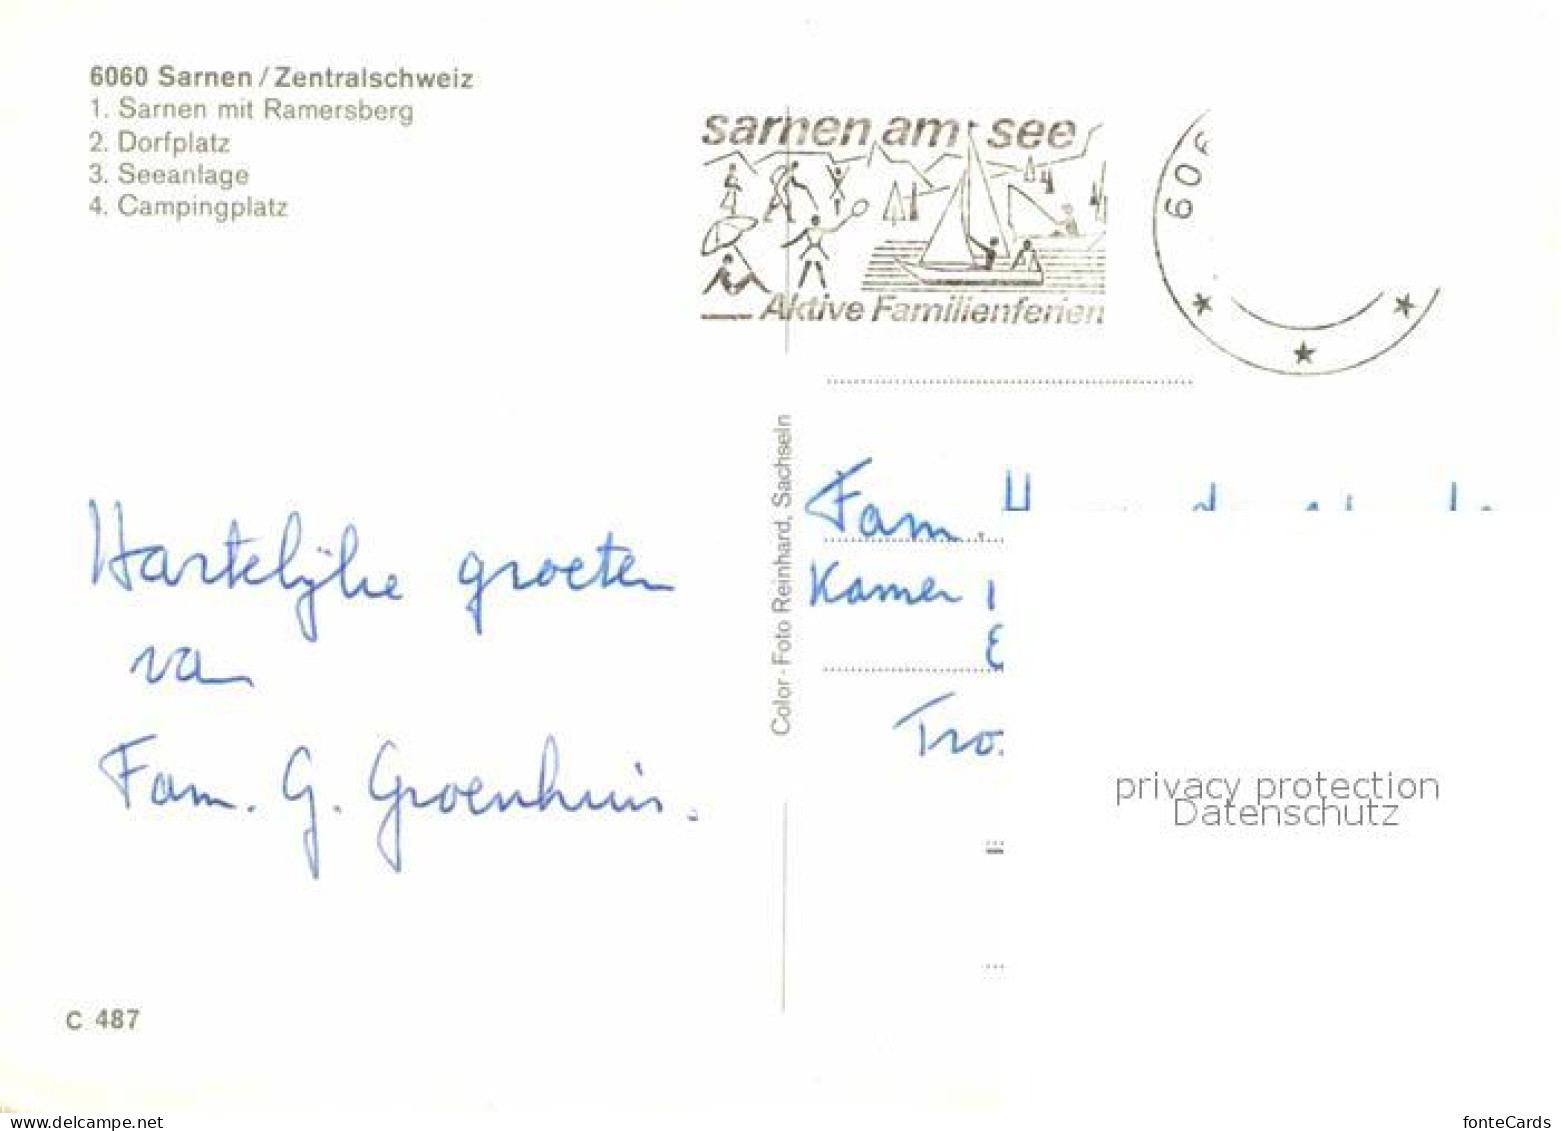 6060 Sarnen / Zentralschweiz
1. Sarnen mit Ramersberg
2. Dorfplatz
3. Seeanlage
4. Campingplatz
sarnen am see
Aktive Familienferien
606
Color - Foto Reinhard, Sachseln
Hartelijke groeten
van
Fam. G. Groenhuis.
Fam.
Kamer
privacy protection
Datenschutz
C 487
www.delcampe.net
fonteCards